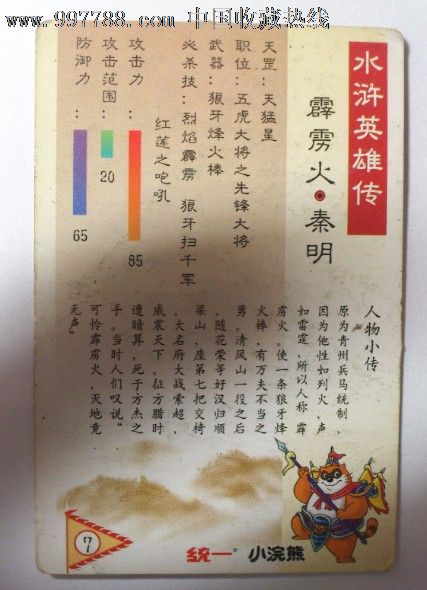 www.997788.com 中国收藏热线
水浒英雄传
霹雳火·秦明
天罡：天猛星
职位：五虎大将之先锋大将
武器：狼牙烽火棒
必杀技：烈焰霹雳 狼牙扫千军
红莲之咆吼
攻击力：
85
攻击范围：
20
防御力：
65
人物小传
原为青州兵马统制，
因为他性如烈火，声
如雷霆，所以人称霹
雳火。使一条狼牙烽
火棒，有万夫不当之
勇。清风山一役之后
，随花荣等好汉归顺
梁山，座第七把交椅
。大名府大战索超，
威震天下。征方腊时
遭暗算，死于方杰之
手。当时人们叹说“
可怜霹雳火，灭地竟
无声”
7
统一®
小浣熊